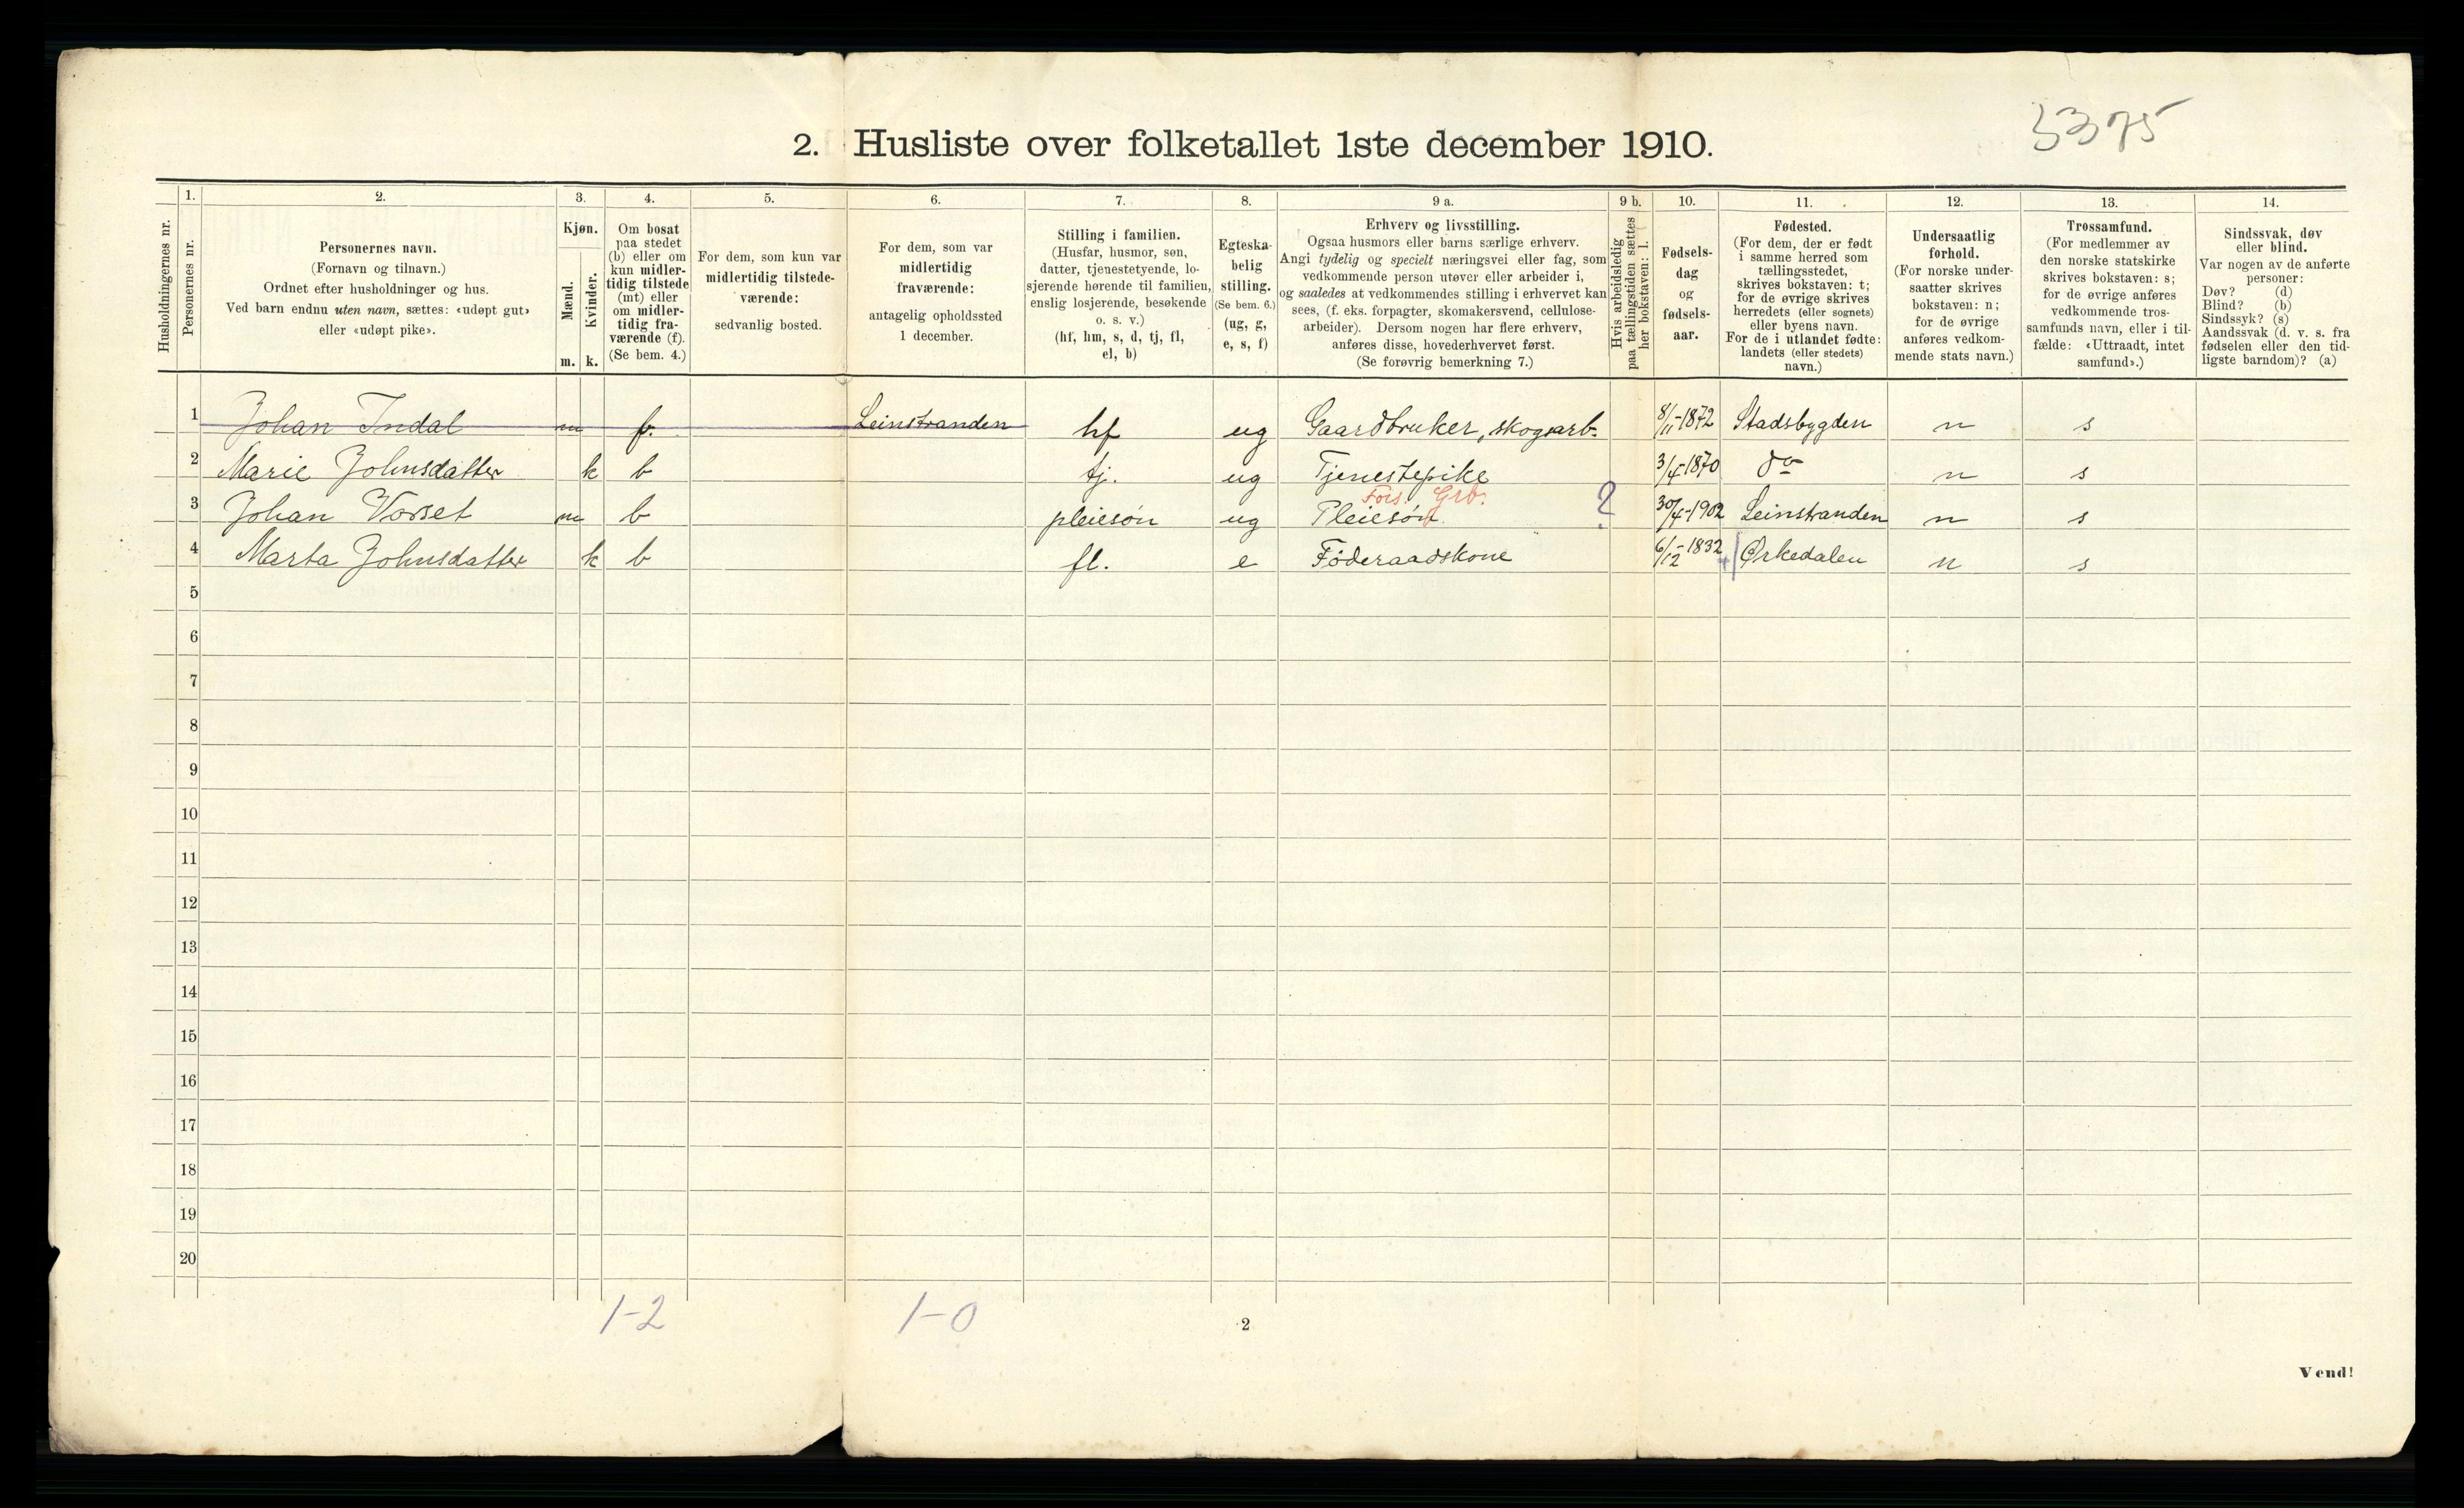 3375
2. Husliste over folketallet 1ste december 1910.
Husholdningernes nr.
1.
Personernes nr.
2.
Personernes navn.
(Fornavn og tilnavn.)
Ordnet efter husholdninger og hus.
Ved barn endnu uten navn, sættes: «udøpt gut»
eller «udøpt pike».
3.
Kjøn.
Mænd.
Kvinder.
m. k.
4.
Om bosat
paa stedet
(b) eller om
kun midler-
tidig tilstede
(mt) eller
om midler-
tidig fra-
værende (f).
(Se bem. 4.)
5.
For dem, som kun var
midlertidig tilstede-
værende:
sedvanlig bosted.
6.
For dem, som var
midlertidig
fraværende:
antagelig opholdssted
1 december.
7.
Stilling i familien.
(Husfar, husmor, søn,
datter, tjenestetyende, lo-
sjerende hørende til familien,
enslig losjerende, besøkende
o. s. v.)
(hf, hm, s, d, tj, fl,
el, b)
8.
Egteska-
belig
stilling.
(Se bem. 6.)
(ug, g,
e, s, f)
9 a.
Erhverv og livsstilling.
Ogsaa husmors eller barns særlige erhverv.
Angi tydelig og specielt næringsvei eller fag, som
vedkommende person utøver eller arbeider i,
og saaledes at vedkommendes stilling i erhvervet kan
sees, (f. eks. forpagter, skomakersvend, cellulose-
arbeider). Dersom nogen har flere erhverv,
anføres disse, hovederhvervet først.
(Se forøvrig bemerkning 7.)
9 b.
Hvis arbeidsledig
paa tællingstiden sættes
her bokstaven: l.
10.
Fødsels-
dag
og
fødsels-
aar.
11.
Fødested.
(For dem, der er født
i samme herred som
tællingsstedet,
skrives bokstaven: t;
for de øvrige skrives
herredets (eller sognets)
eller byens navn.
For de i utlandet fødte:
landets (eller stedets)
navn.)
12.
Undersaatlig
forhold.
(For norske under-
saatter skrives
bokstaven: n;
for de øvrige
anføres vedkom-
mende stats navn.)
13.
Trossamfund.
(For medlemmer av
den norske statskirke
skrives bokstaven: s;
for de øvrige anføres
vedkommende tros-
samfunds navn, eller i til-
fælde: «Uttraadt, intet
samfund».)
14.
Sindssvak, døv
eller blind.
Var nogen av de anførte
personer:
Døv? (d)
Blind? (b)
Sindssyk? (s)
Aandssvak (d. v. s. fra
fødselen eller den tid-
ligste barndom)? (a)
1 Johan Indal m f. Leinstranden hf ug Gaardbruker, skogsarb. 8/11-1872 Stadsbygden n s
2 Marie Johnsdatter k b tj. ug Tjenestepike 3/4-1870 do n s
Fors. Grb.
3 Johan Vorset m b pleiesön ug Pleiesön. ? 30/4-1902 Leinstranden n s
4 Marta Johnsdatter k b fl. e Föderaadskone 6/12-1832 Ørkedalen n s
5
6
7
8
9
10
11
12
13
14
15
16
17
18
19
20
1-2 1-0
2
Vend!